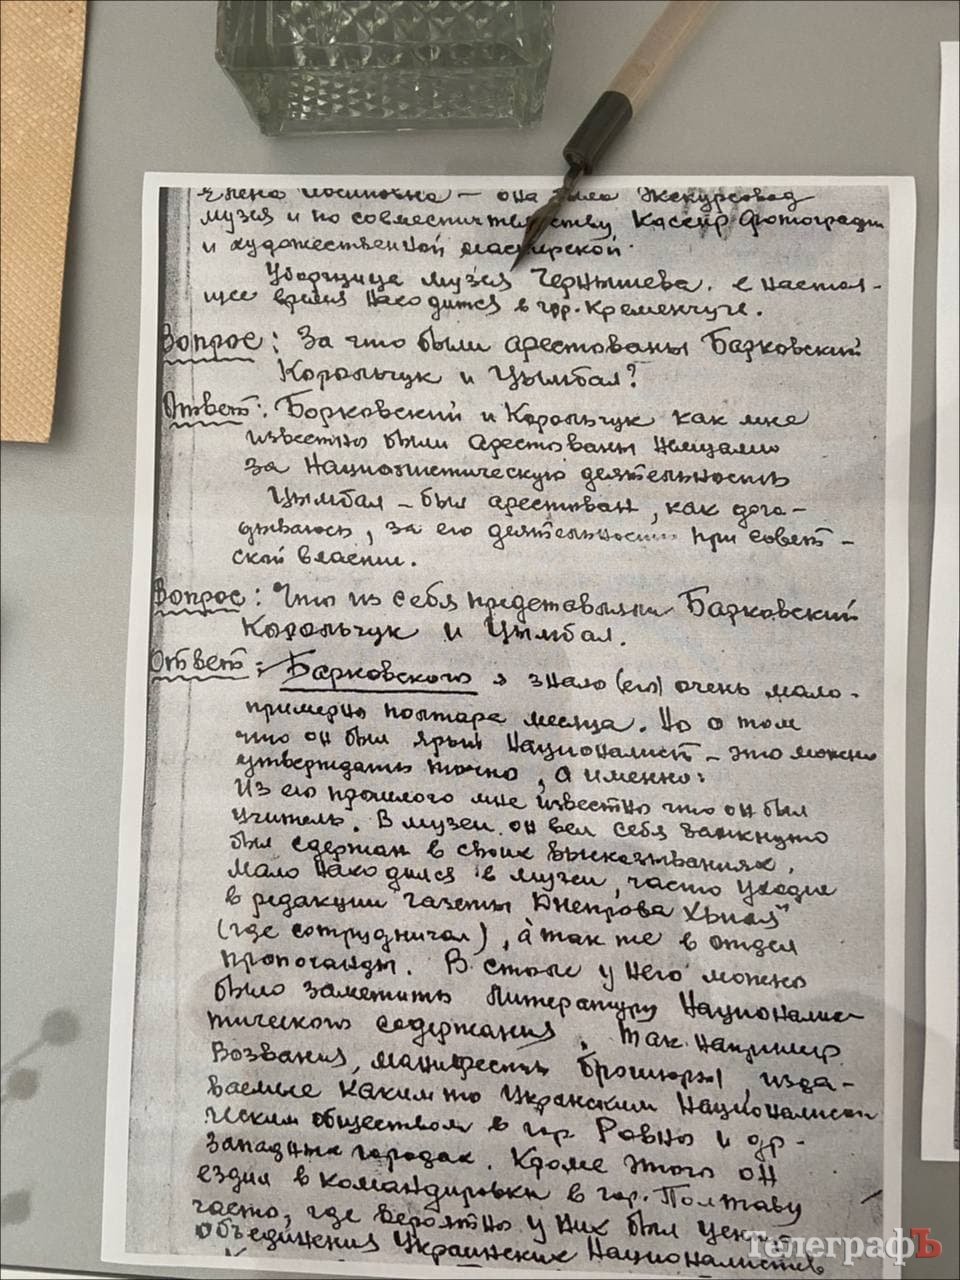 она была экскурсовод
музея и по совместительству кассир фотографии
и художественной мастерской.
Уборщица музея Чернышева. в настоя-
щее время находится в гор. Кременчуге.
Вопрос: За что были арестованы Барковский
Корольчук и Цымбал?
Ответ: Борковский и Корольчук как мне
известно были арестованы немцами
за националистическую деятельность
Цымбал – был арестован, как дога-
дываюсь, за его деятельность при совет-
ской власти.
Вопрос: Что из себя представляли Барковский
Корольчук и Цымбал.
Ответ: Барковского я знало (его) очень мало-
примерно полтара месяца. Но о том
что он был ярый националист – это можно
утверждать точно, а именно:
Из его прошлого мне известно что он был
учитель. В музеи он вел себя замкнуто
был сдержан в своих высказываниях.
Мало находился в музеи, часто уходил
в редакции газеты Днепрова Хвыля"
(где сотрудничал), а так же в отдел
пропоганды. В столе у него можно
было заметить литературу националис-
тического содержания. Так например
Возвания, манифесты брошюры, изда-
ваемые каким то украинским националисти-
ческим обществом в гор Ровно и др-
западных городах. Кроме этого он
ездил в командировки в гор. Полтаву
часто, где вероятно у них был центр
объединения украинских националистов
ТелеграфЪ